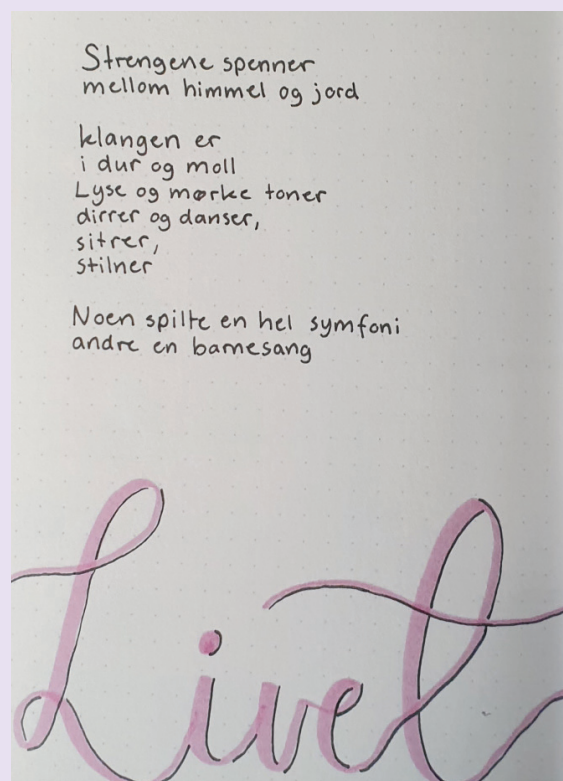 Strengene spenner
mellom himmel og jord
klangen er
i dur og moll
Lyse og mørke toner
dirrer og danser,
sitrer,
stilner
Noen spilte en hel symfoni
andre en barnesang
Livet